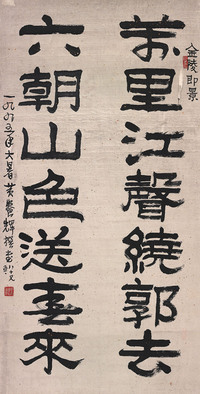 金陵即景
萬里江聲繞郭去
六朝山色送春來
一九九五年大暑 黄養輝撰書